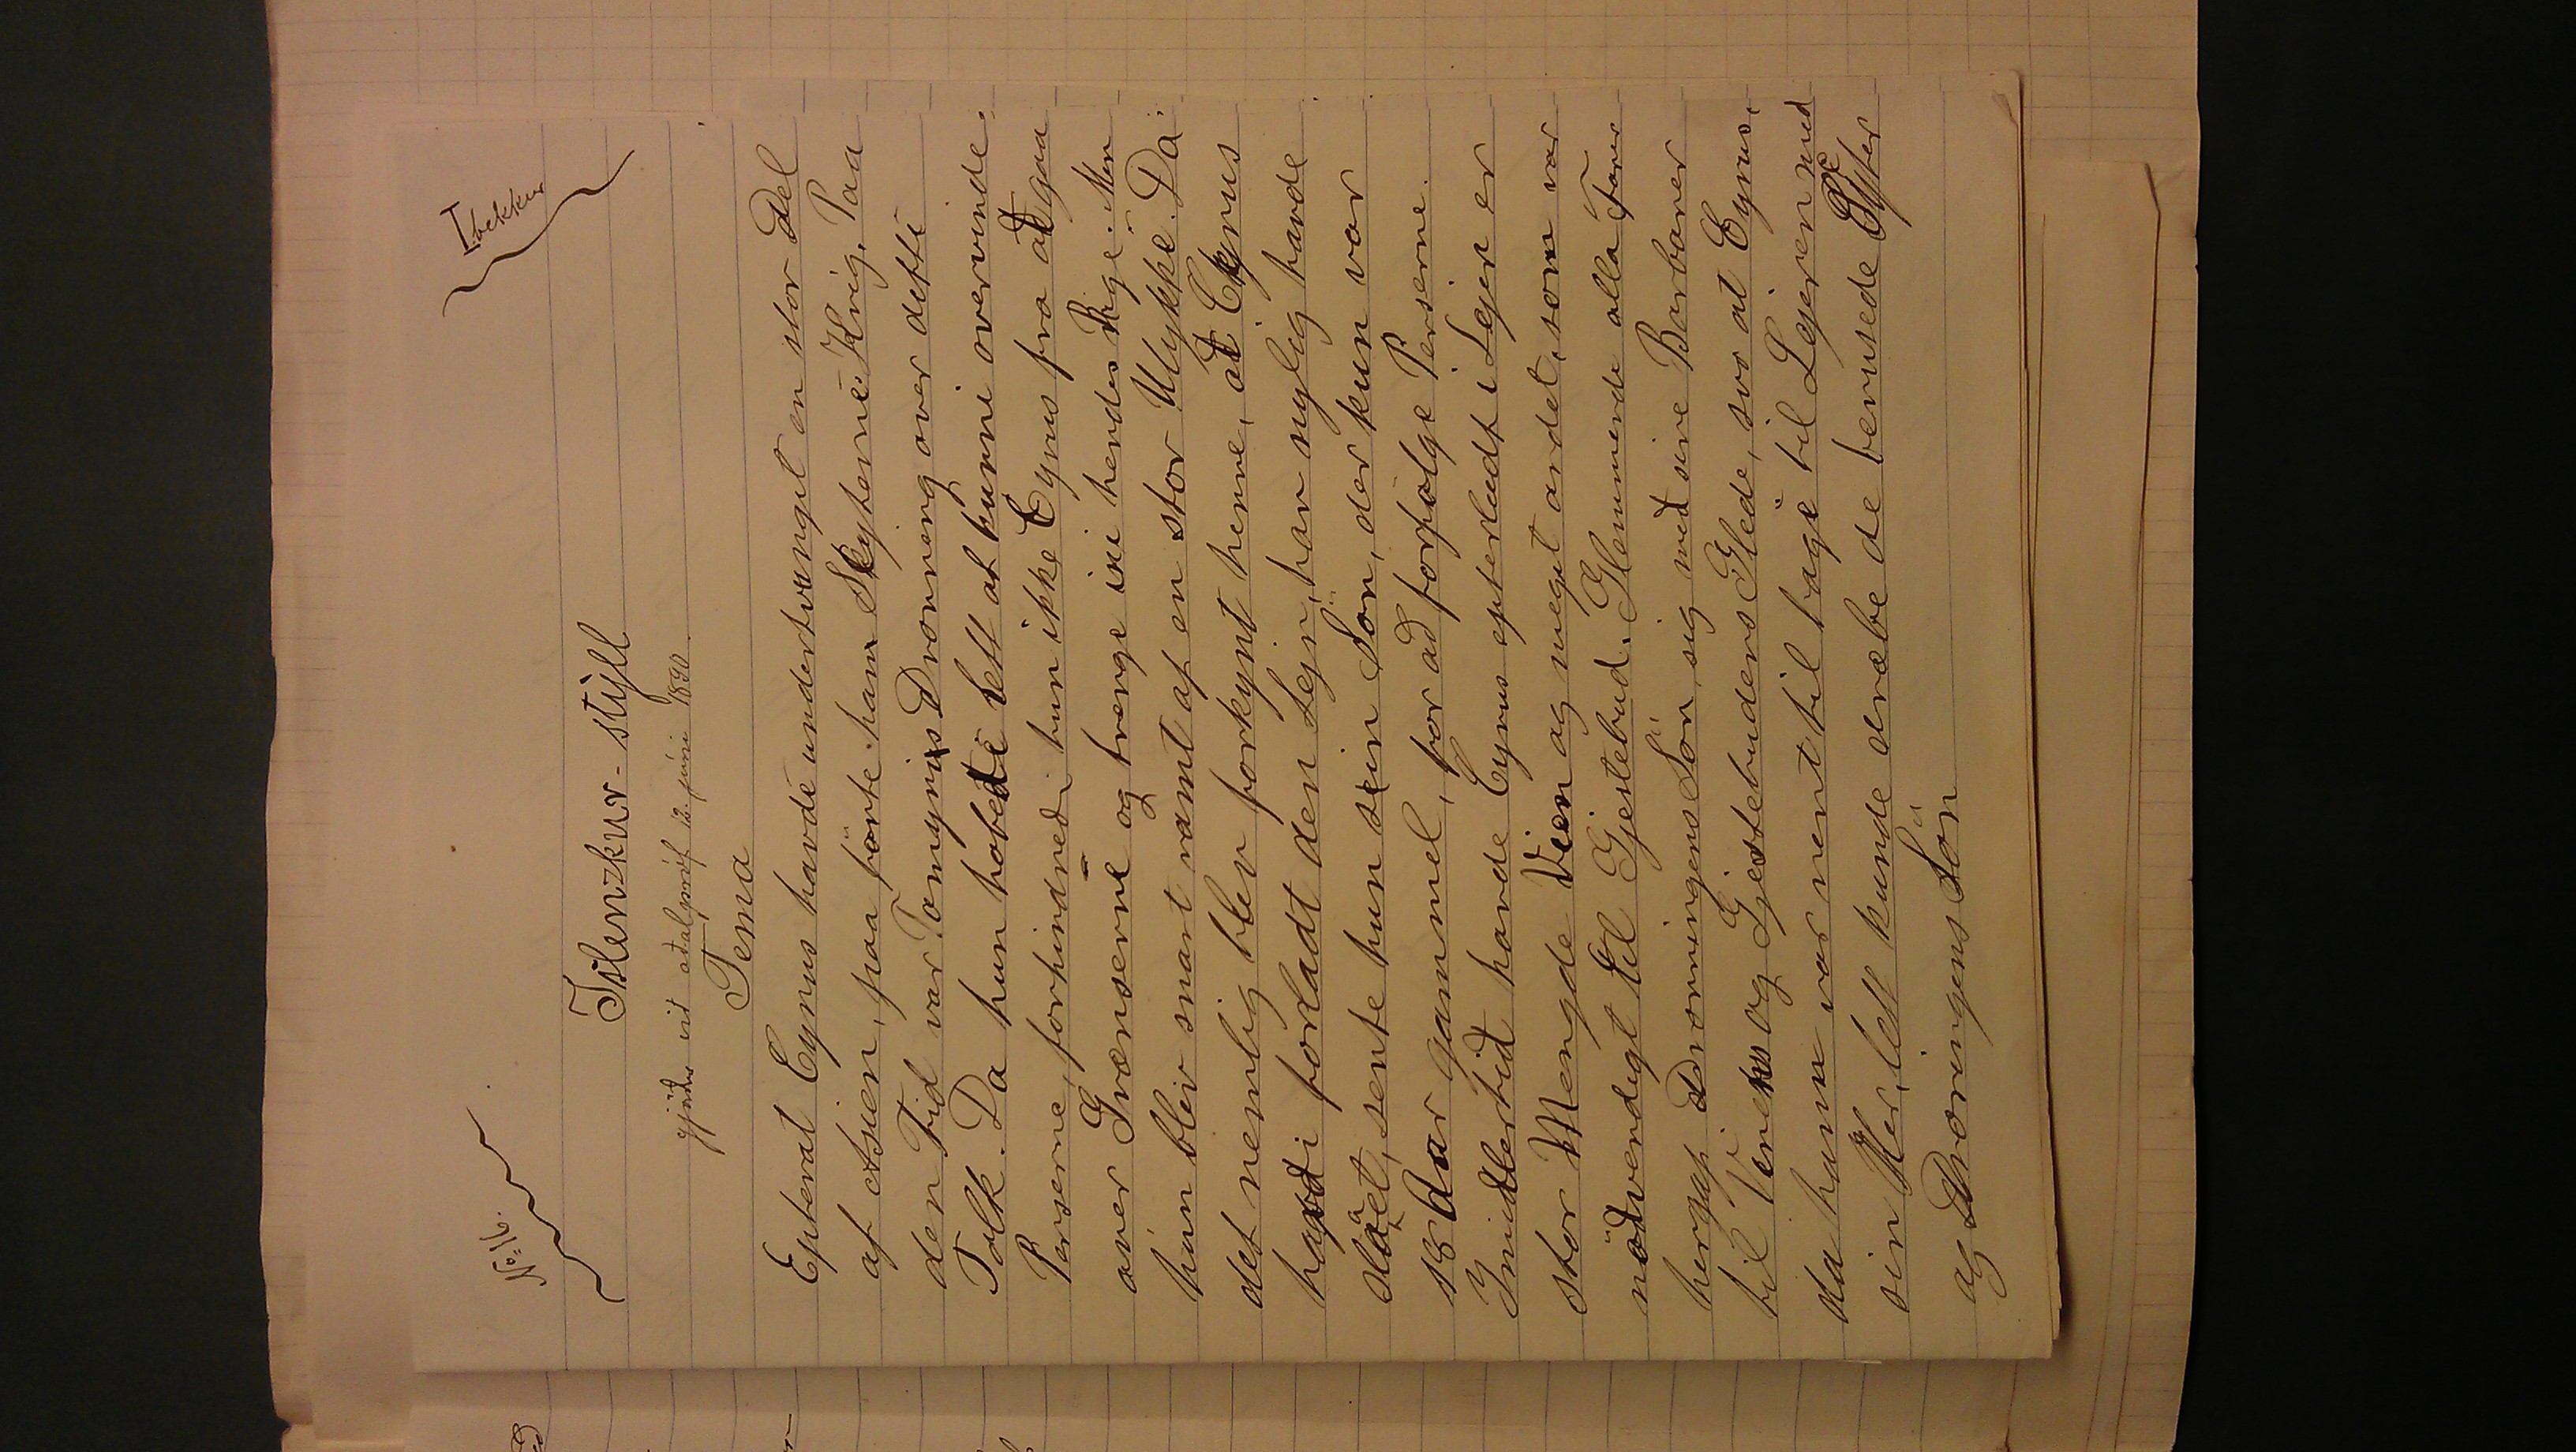 No: 16.
I bekkur
Islenzkur - stýll
gjörður við aðalpróf 12. júni 1890.
Tema
Epterat Cyrus havde undertvungit en stor Del
af Asien, paa förte han Skyterne Krig. Paa
den Tid var Tomyris Dronning over dette
Folk. Da hun hobede lett at kunne overvinde
Perserne, forhindred hun ikke Cyrus fra at gaa
over Grænserne og trenge ini herdes Rige. Men
hun blev snart ramt af en stor Ulykke. Da
det nemlig blev forkynt henne, at Cyrus
havdi forladt den Lejr, han nylig havde
slaaet, sente hun sin Sön, der kun var
18 Aar gammel, for að forfölge Perserne.
Imidlertid havde Cyrus epterladt i Lejer er
stor Mengde Vien og meget andet, som var
nödvendigt til Gjestebud. Glemmende alla Farer
hergaf Dronningens Sön sig med sine Barbarer
til Vinens og Gjestebudens Glede, svo at Cyrus,
da hann var vent til bage til Lejeren med
sin Her, lett kunde dræbe de berusede Skyter
og Droningens Sön